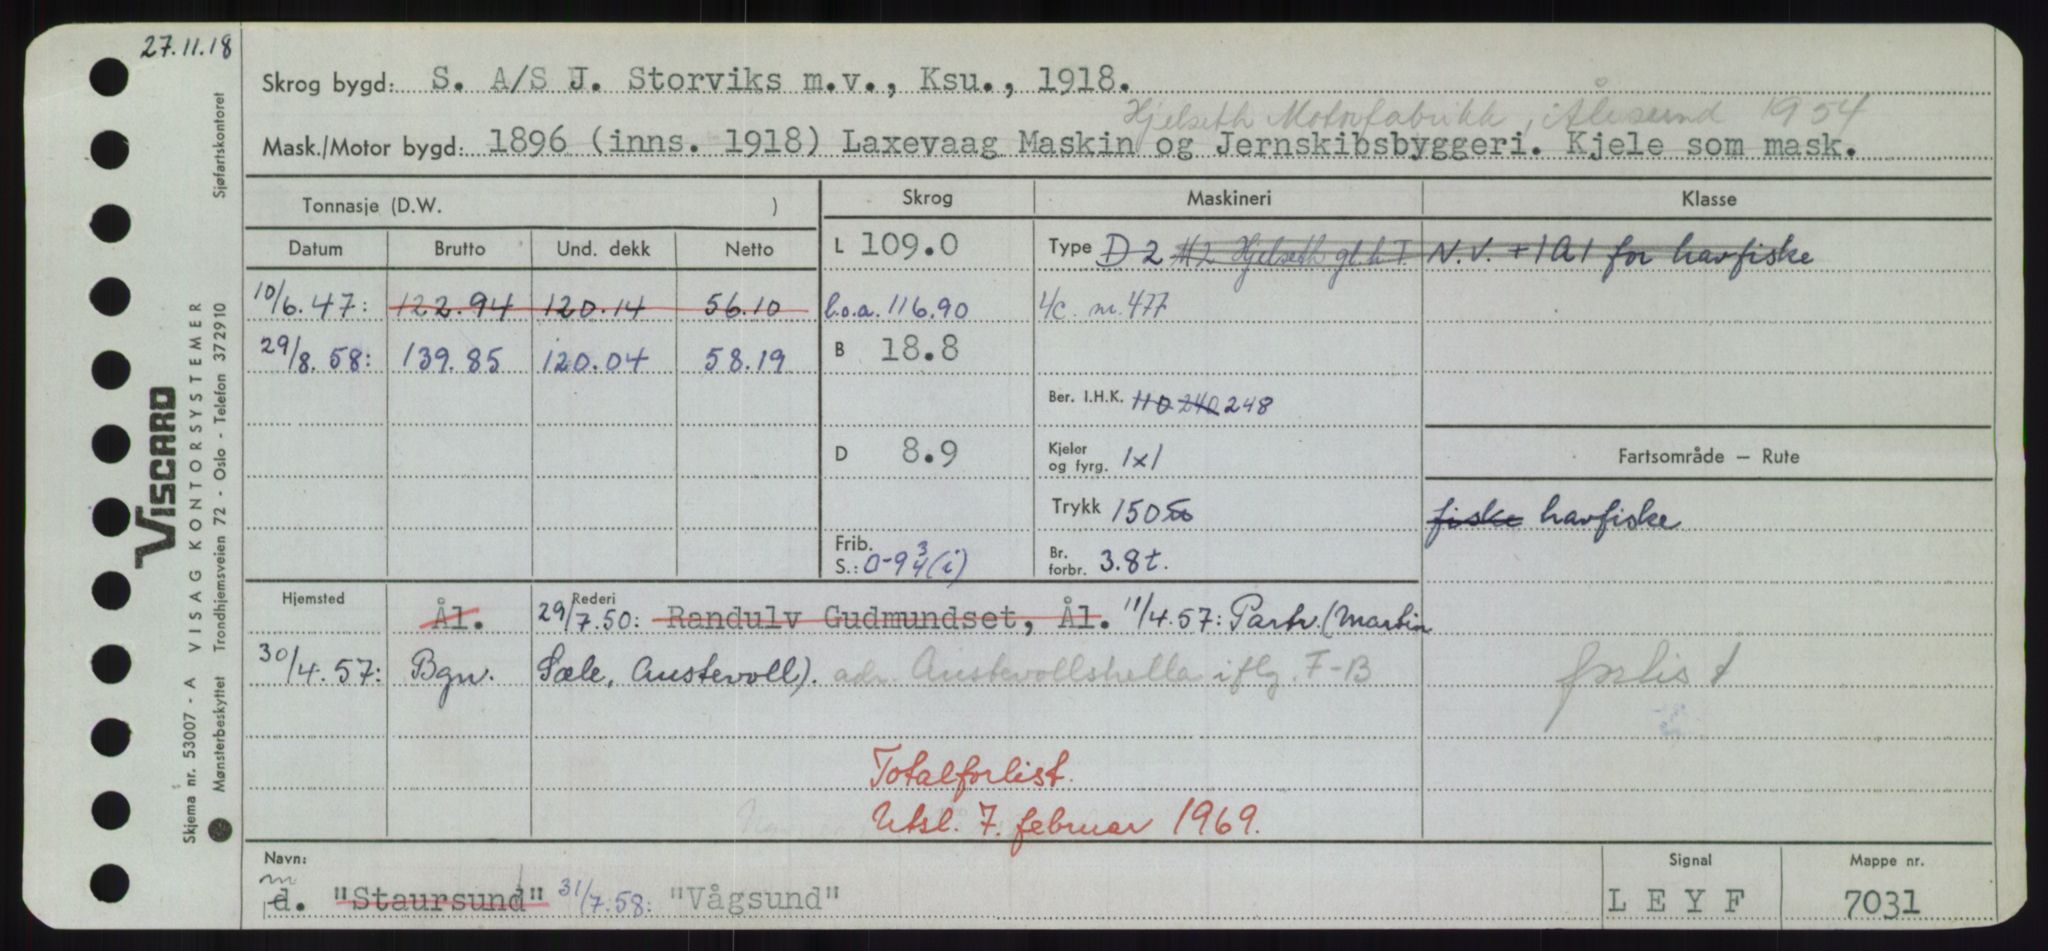 27.11.18
Skrog bygd: S. A/S J. Storviks m.v., Ksu., 1918.
Hjelseth Motorfabrikk, Ålesund 1954
Mask./Motor bygd: 1896 (inns. 1918) Laxevaag Maskin og Jernskibsbyggeri. Kjele som mask.
Tonnasje (D.W. )
Skrog Maskineri Klasse
Datum Brutto Und. dekk Netto
L 109.0 Type D 2 H2 Hjelseth gl.h T. N.V. +1A1 for havfiske
10/6.47: 122.94 120.14 56.10 l.o.a. 116.90 4/c nr. 477
29/8.58: 139.85 120.04 58.19 B 18.8
Ber. I.H.K. 110 240 248
D 8.9 Kjeler og fyrg. 1x1 Fartsområde — Rute
Trykk 150 fiske havfiske
Frib. S.: 0-9 3/4 (i) Br. forbr. 3.8t.
Hjemsted Rederi
Ål. 29/7.50: Randulv Gudmundset, Ål. 11/4.57: Partr. (Martin
30/4.57: Bgn. Sæle, Austevoll). adr. Austevollshella iflg. F-B forlist
Totalforlist.
Utsl. 7. februar 1969.
Navn: Signal Mappe nr.
m
d. "Staursund" 31/7.58: "Vågsund" LEYF 7031
Viscard
VISAG KONTORSYSTEMER
Skjema nr. 53007 - A
Mønsterbeskyttet Trondhjemsveien 72 - Oslo - Telefon 372910 Sjøfartskontoret